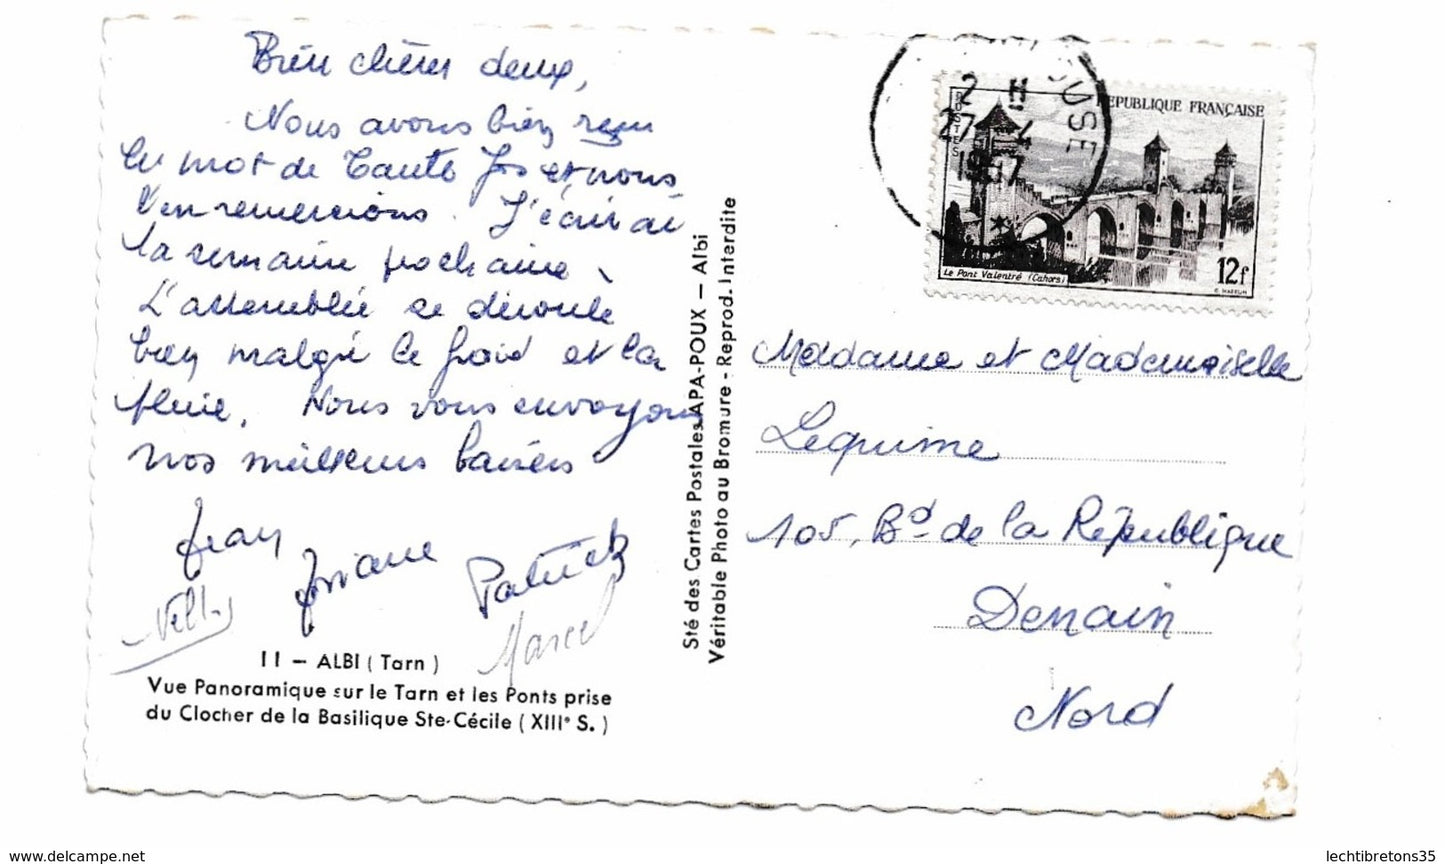 Bien chères deux,
Nous avons bien reçu
le mot de Tante Jos et nous
l'en remercions. J'écrirai
la semaine prochaine.
L'assemblée se déroule
bien malgré le froid et la
pluie. Nous vous envoyons
nos meilleurs baisers
Jean
Josiane
Patrick
Nelly
Marcel
11 – ALBI (Tarn)
Vue Panoramique sur le Tarn et les Ponts prise
du Clocher de la Basilique Ste-Cécile (XIIIe S.)
Sté des Cartes Postales APA-POUX – Albi
Véritable Photo au Bromure - Reprod. Interdite
OUSE
2 H
27 - 4
1957
*
POSTES
REPUBLIQUE FRANÇAISE
Le Pont Valentré (Cahors)
12f
Madame et Mademoiselle
Lequime
105, Bd de la République
Denain
Nord
www.delcampe.net
lechtibretons35